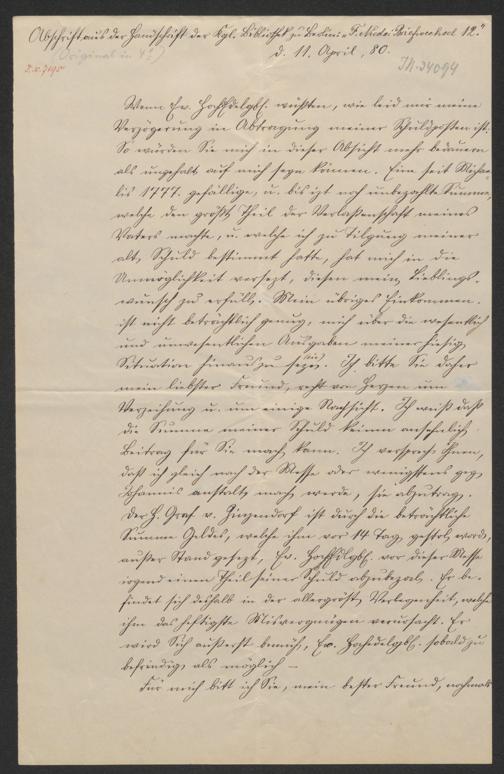 Abschrift aus der Handschrift der Kgl. Bibliothek zu Berlin: "F. Nicolai Briefwechsel 12."
(Original in 4°)
d. 11. April, 80.
I.N. 34094
Wenn Ew. Hochedelgbh. wüßten, wie leid mir meine
Verzögerung in Abtragung meiner Schuldposten ist.
So würden Sie mich in dieser Absicht mehr bedauern
als ungehalt. auf mich seyn können. Eine seit Michae-
lis 1777. gefällige, u. bis izt noch unbezahlte Summe,
welche den größt. Theil der Verlaßenschaft meines
Vaters machte, u. welche ich zu Tilgung meiner
alt. Schuld bestimmt hatte, hat mich in die
Unmöglichkeit versezt, diesen mein. Lieblings-
wunsch zu erfüll. Mein übriges Einkommen
ist nicht beträchtlich genug, mich über die wesentlich
und unwesentlichen Ausgaben meiner hiesig.
Situation hinaus zu sezen. Ich bitte Sie daher
mein liebster Freund, recht von Herzen um
Verzeihung u. um einige Nachsicht. Ich weiß daß
die Summe meiner Schuld keinen ansehnlich.
Beitrag für Sie mach. kann. Ich versprech. Ihnen,
daß ich gleich nach der Messe oder wenigstens geg.
Johannis anstalt. mach. werde, sie abzutrag.
Der H. Graf v. Zinzendorf ist durch die beträchtliche
Summe Geldes, welche ihm vor 14 Tag. gestohl. worden,
außer Stand gesezt, Ew. Hochedelgbh. vor dieser Messe
irgend einen Theil seiner Schuld abzubezal. Er be-
findet sich deshalb in der allergrößt. Verlegenheit, welche
ihm das heftigste Misvergnügen verursacht. Er
wird Sich äußerst bemüh., Ew. Hochedelgbh. sobald zu
befriedig. als möglich —
Für mich bitt ich Sie, mein bester Freund, nochmals